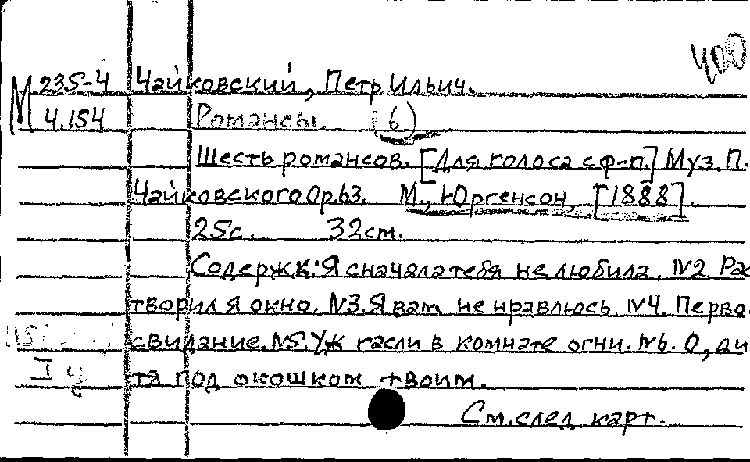 400
М 235-4 Чайковский, Петр Ильич.
4.154 Романсы. (6)
Шесть романсов. [Для голоса с ф-п.] Муз. П.
Чайковского Ор.63. М., Юргенсон, [1888].
25с. 32см.
Содерж.: Я сначала тебя не любила. №2. Рас
творил я окно. №3. Я вам не нравлюсь. №4. Перво
свидание. №5. Уж гасли в комнате огни. №6. О, ди
тя под окошком твоим.
См. след карт.